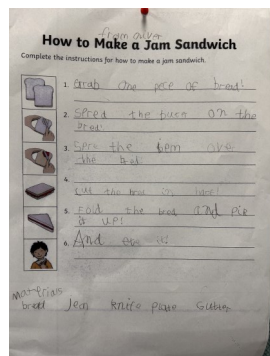 from oliver
How to Make a Jam Sandwich
Complete the instructions for how to make a jam sandwich.
1. Grab one pece of bread!
2. Spred the buter on the
bred.
3. Spre the Jem over
the bred.
4.
cut the bred in
5. Fold the bred and pic
it up!
6. And eat it!
materials
bread Jem knife plate